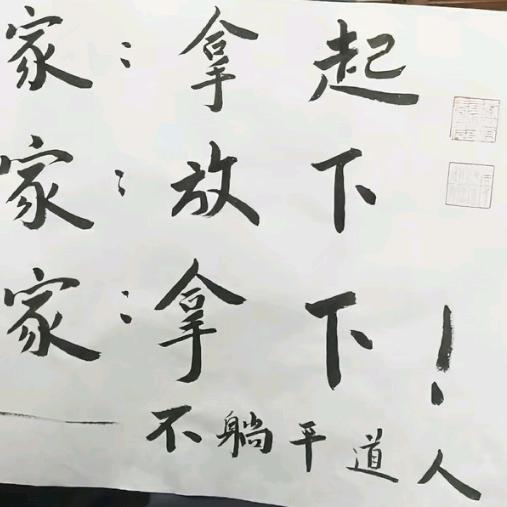 家：拿起
家：放下
家：拿下！
不躺平道人